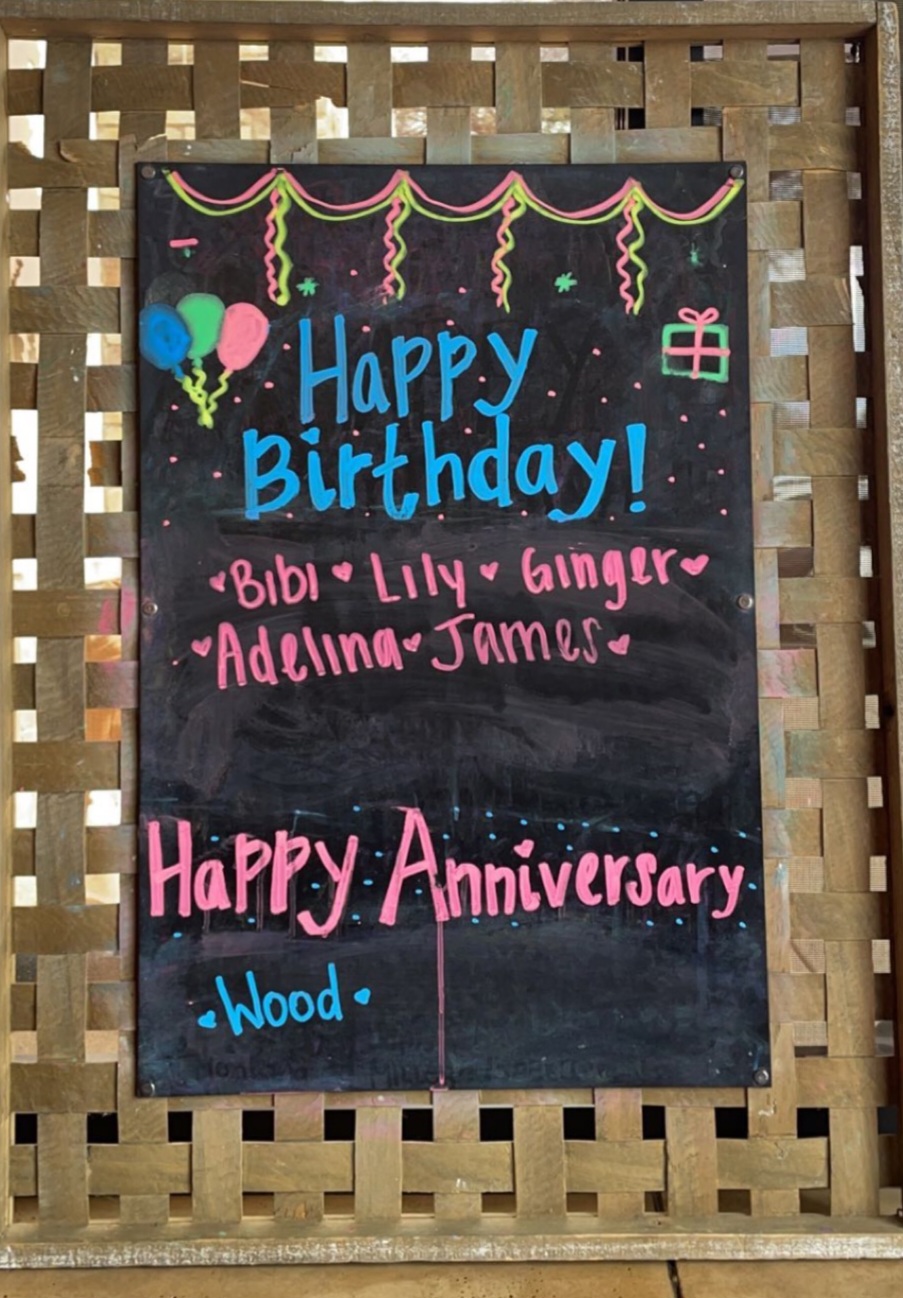 Happy
Birthday!
Bibi Lily Ginger
Adelina James
Happy Anniversary
Wood